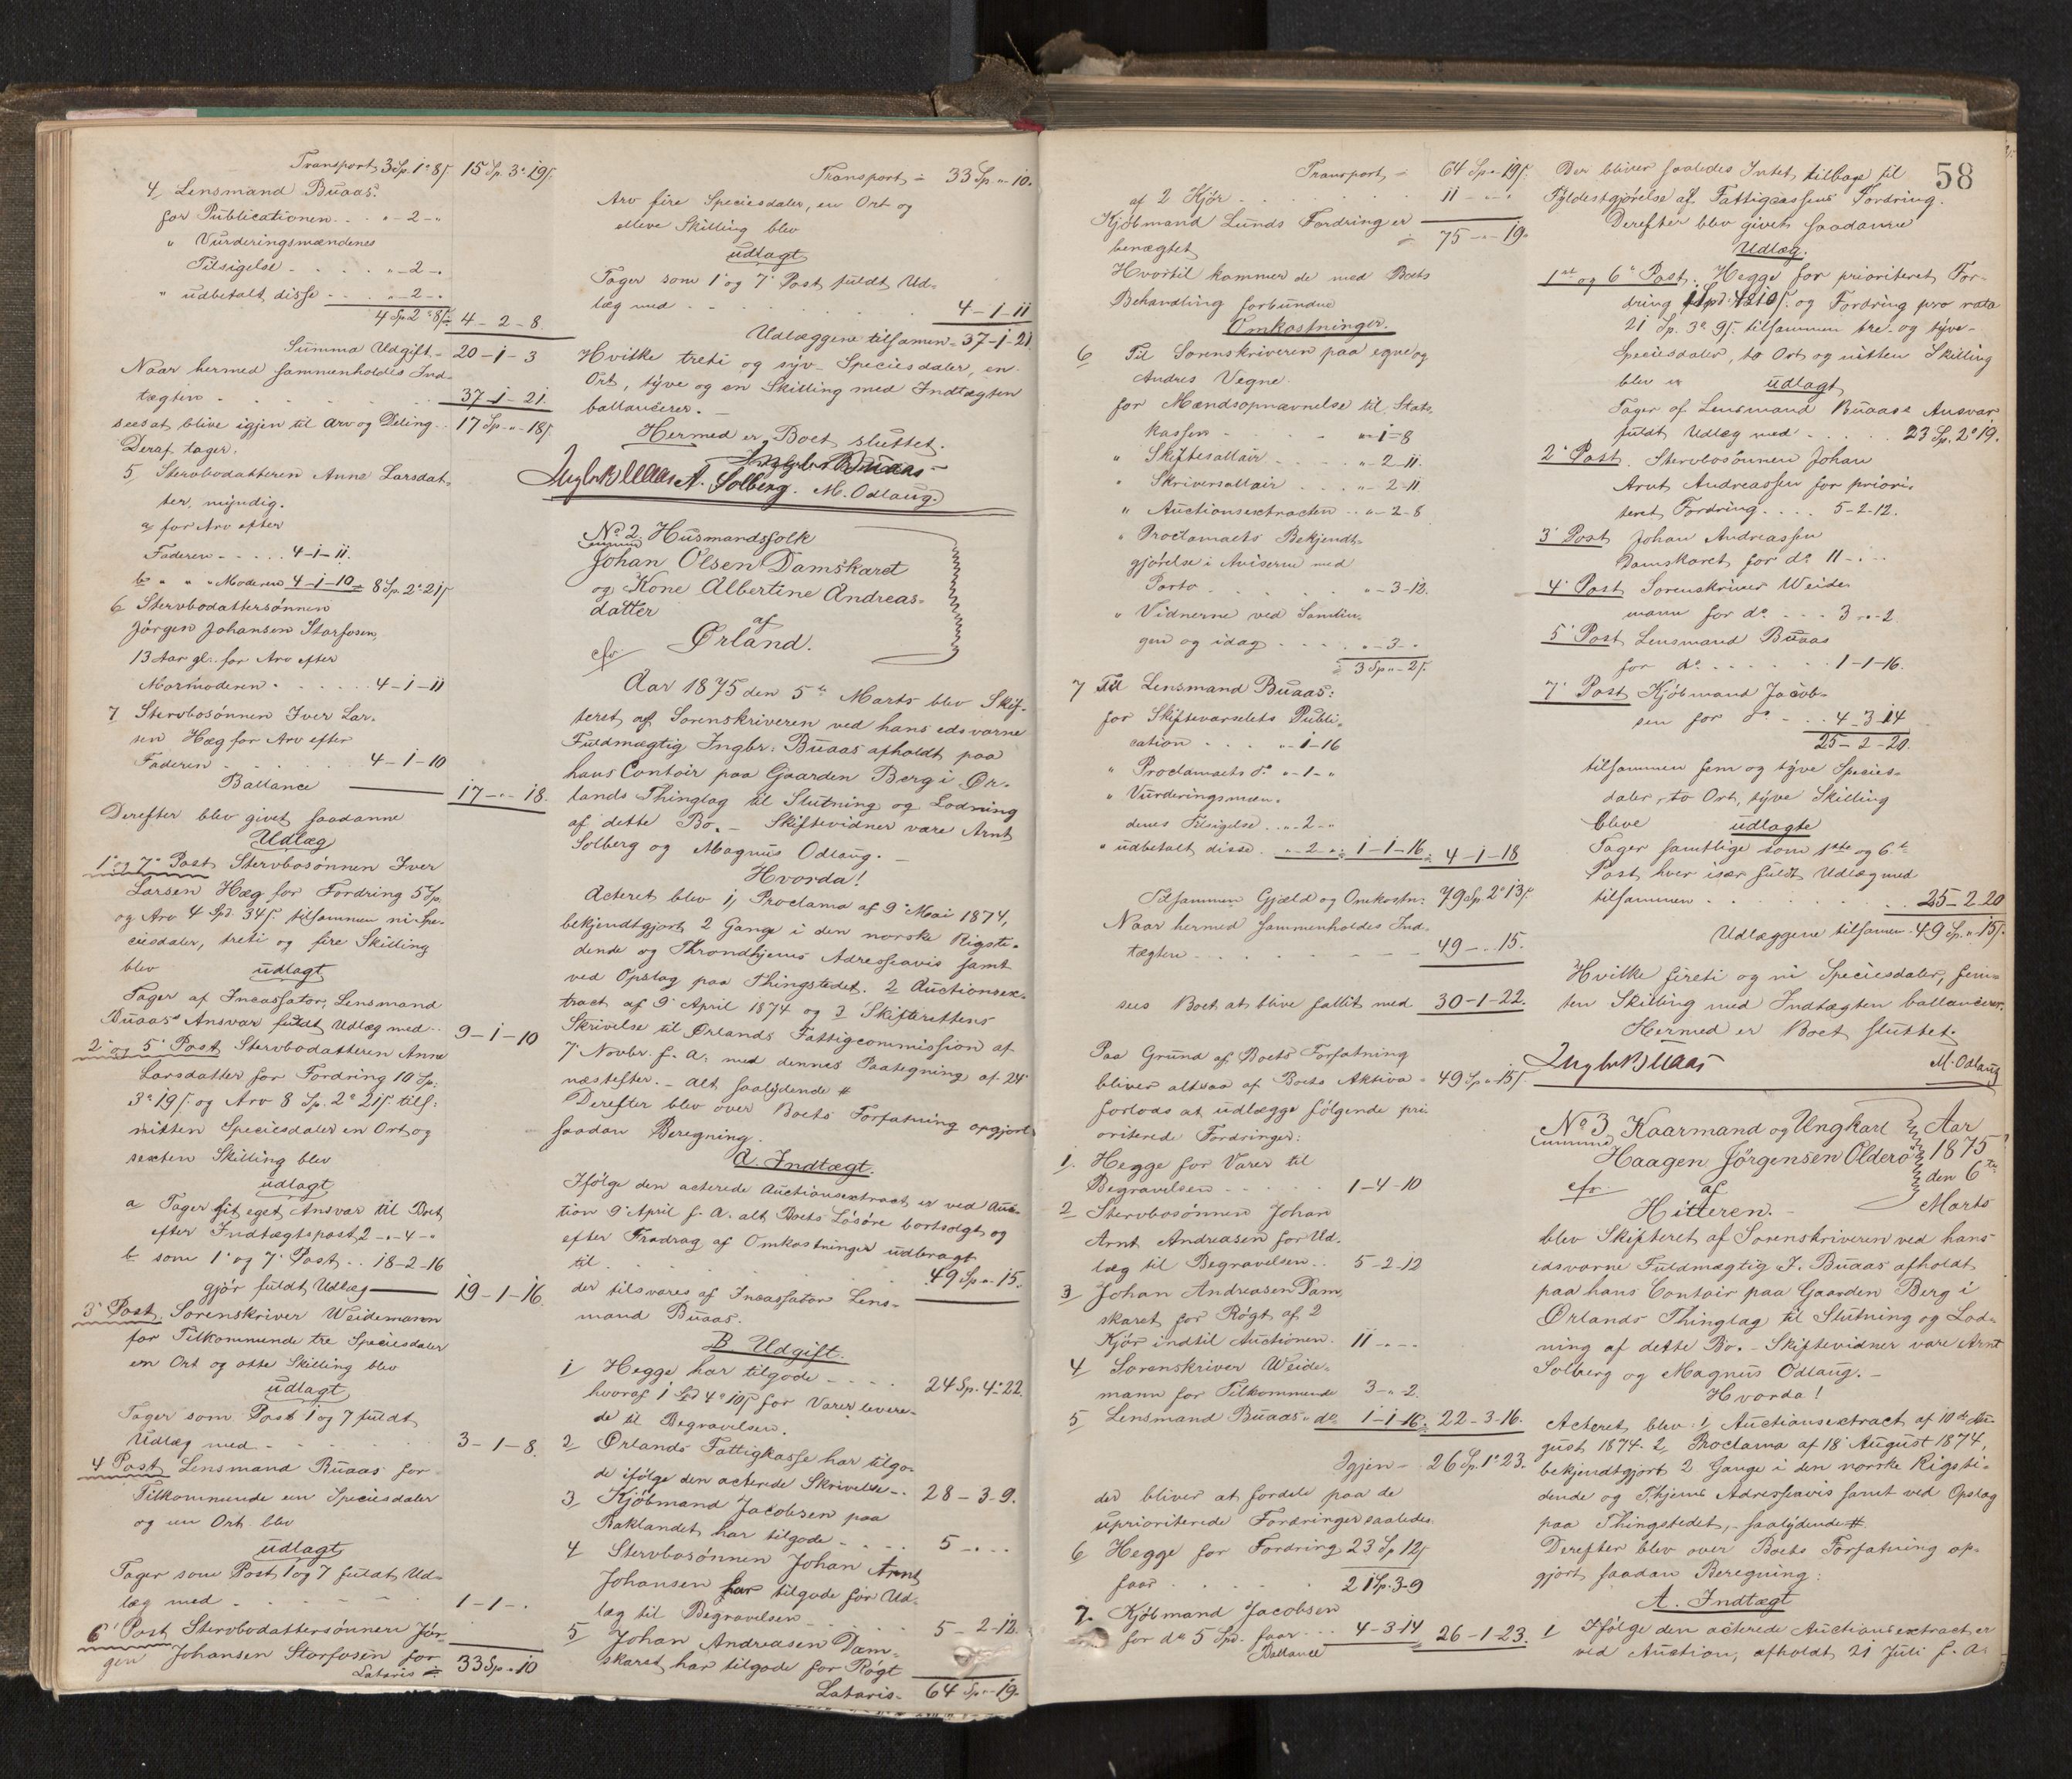 Transport 3 Sp. 1o 8 s 15 Sp. 3o 19 s.
4 Lensmand Buaas:
for Publicationen . . . „ - 2 - „
„ Vurderingsmændenes
Tilsigelse . . . . . „ - 2 - „
„ udbetalt disse . . . „ - 2 - „
4 Sp. 2o 8 s = 4 - 2 - 8
Summa Udgift = 20 - 1 - 3
Naar hermed sammenholdes Ind-
tægten . . . . . 37 - 1 - 21.
sees at blive igjen til Arv og Deling . . 17 Sp. „ - 18 s.
Deraf tager.
5 Stervbodatteren Anne Larsdat-
ter, myndig.
a, for Arv efter
Faderen . . . . . 4 - 1 - 11.
b „ „ „ Moderen 4 - 1 - 10 = 8 Sp. 2o 21 s
6 Stervbodattersønnen
Jörgen Johansen Storfosen,
13 Aar gl. for Arv efter
Mormoderen . . . . . 4 - 1 - 11
7 Stervbosønnen Iver Lar-
sen Hæg for Arv efter
Faderen . . . . . 4 - 1 - 10
Ballance 17 - „ - 18.
Derefter blev givet saadanne
Udlæg
1o og 7o Post Stervbosønnen Iver
Larsen Hæg for Fordring 5 Sp.
og Arv 4 Spd. 34 s. tilsammen ni Spe-
ciesdaler, treti og fire Skilling
blev udlagt
Tager af Incassator, Lensmand
Buaas' Ansvar fuldt Udlæg med . . 9 - 1 - 10
2o og 5o Post Stervbodatteren Anne
Larsdatter for Fordring 10 Sp.
3o 19 s. og Arv 8 Sp. 2o 21 s. tils:
nitten Speciesdaler en Ort og
sexten Skilling blev
udlagt
a Tager sit eget Ansvar til Boet
efter Indtægtspost 2 - „ - 4 - „
b som 1o og 7o Post . . 18 - 2 - 16
gjør fuldt Udlæg 19 - 1 - 16.
3o Post. Sorenskriver Weidemann
for Tilkommende tre Speciesdaler
en Ort og otte Skilling blev
udlagt
Tager som Post 1 og 7 fuldt
Udlæg med . . . . . 3 - 1 - 8.
4 Post Lensmand Buaas for
Tilkommende en Speciesdaler
og en Ort blev
udlagt
Tager som Post 1 og 7 fuldt Ud-
læg med . . . . . 1 - 1 - „
6o Post Stervbodattersønnen Jör-
gen Johansen Storfosen for
Lateris = 33 Sp „ 10
Transport = 33 Sp „ - 10.
Arv fire Speciesdaler, en Ort og
elleve Skilling blev
udlagt
Tager som 1o og 7o Post fuldt Ud-
læg med . . . . . 4 - 1 - 11
Udlæggene tilsamen = 37 - 1 - 21
Hvilke treti og syv Speciesdaler, en
Ort, tyve og en Skilling med Indtægten
ballancerer. -
Hermed er Boet sluttet.
Ingbr Buaas A. Solberg. M. Odlaug.
No 2. Husmandsfolk
Johan Olsen Damskaret
og Kone Albertine Andreas-
datter
af
cfr Ørland.
Aar 1875 den 5te Marts blev Skif-
teret af Sorenskriveren ved hans edsvorne
Fuldmægtig Ingbr: Buaas afholdt paa
hans Contoir paa Gaarden Berg i Ør-
lands Thinglag til Slutning og Lodning
af dette Bo. - Skiftevidner vare Arnt
Solberg og Magnus Odlaug. -
Hvorda!
Acteret blev 1, Proclama af 9o Mai 1874,
bekjendtgjort 2 Gange i den norske Rigsti-
dende og Throndhjems Adresseavis samt
ved Opslag paa Thingstedet. 2 Auctionsex-
tract af 9o April 1874 og 3 Skifterettens
Skrivelse til Ørlands Fattigcommission af
7o Novbr. f. A. med dennes Paategning af 24o
næstefter. - Alt saalydende #
Derefter blev over Boets Forfatning opgjort
saadan Beregning.
A. Indtægt.
Ifølge den acterede Auctionsextract er ved Auc-
tion 9o April f. A. alt Boets Løsøre bortsolgt og
efter Fradrag af Omkostninger udbragt
til . . . . . 49 Sp „ 15.
der tilsvares af Incassator Lens-
mand Buaas.
B Udgift.
1 Hegge har tilgode . . . . 24 Sp. 4o 22.
hvoraf 1 Spd 4o 10 s for Varer levere-
de til Begravelsen.
2 Ørlands Fattigkasse har tilgo-
de ifølge den acterede Skrivelse . . 28 - 3 - 9.
3 Kjöbmand Jacobsen paa
Baklandet har tilgode . . . . 5 - „ - „
4 Stervbosønnen Johan Arnt
Johansen har tilgode for Ud-
læg til Begravelsen . . . . 5 - 2 - 12
5 Johan Andreasen Dam-
skaret har tilgode for Røgt
Lateris = 64 Sp „ - 19.
58
Transport = 64 Sp „ - 19 s.
af 2 Kjör . . . . . 11 - „ - „
Kjöbmand Lunds Fordring er = 75 - „ - 19.
benægtet
Hvortil kommer de med Boets
Behandling forbundne
Omkostninger.
6 Til Sorenskriveren paa egne og
Andres Vegne.
for Mændsopnævnelse til Stats-
kassen . . . . . „ - 1 - 8
„ Skiftesallair . . . . . „ - 2 - 11.
„ Skriversallair . . . . „ - 2 - 11
„ Auctionsextracten . . „ - 2 - 8
„ Proclamaets Bekjendt-
gjørelse i Aviserne med
Porto . . . . . „ - 3 - 12.
„ Vidnerne ved Samlin-
gen og idag . . . . . „ - 3 - „
= 3 Sp „ - 2 s.
7 Til Lensmand Buaas:
for Skiftevarselets Publi-
cation . . . . „ - 1 - 16
„ Proclamaets do „ - 1 - „
„ Vurderingsmæn-
denes Tilsigelse . . „ - 2 - „
„ udbetalt disse. . „ - 2 - „ = 1 - 1 - 16 = 4 - 1 - 18
Tilsammen Gjæld og Omkostn: 79 Sp. 2o 13 s.
Naar hermed sammenholdes Ind-
tægten . . . . . 49 - „ - 15.
sees Boet at blive fallit med 30 - 1 - 22.
Paa Grund af Boets Forfatning
bliver altsaa af Boets Aktiva = 49 Sp „ 15 s.
forlods at udlægge følgende pri-
oriterede Fordringer:
1. Hegge for Varer til
Begravelsen . . . . . 1 - 4 - 10
2 Stervbosønnen Johan
Arnt Andreasen for Ud-
læg til Begravelsen . . 5 - 2 - 12
3 Johan Andreasen Dam-
skaret for Røgt af 2
Kjör indtil Auctionen. 11 - „ - „
4 Sorenskriver Weide-
mann for Tilkommende 3 - „ - 2.
5 Lensmand Buaas „ do 1 - 1 - 16 = 22 - 3 - 16.
Igjen = 26 Sp. 1o 23.
der bliver at fordele paa de
uprioriterede Fordringer saaledes.
6 Hegge for Fordring 23 Sp 12 s
faar . . . . . 21 Sp. 3 - 9
7. Kjöbmand Jacobsen
for do 5 Spd. faar . . . 4 - 3 - 14 = 26 - 1 - 23.
Ballance
Der bliver saaledes Intet tilbage til
Fyldestgjørelse af Fattigcassens Fordring.
Derefter blev givet saadanne
Udlæg:
1ste og 6te Post. Hegge for prioriteret For-
dring 1 Spd. 4o 10 s. og Fordring pro rata
21 Sp. 3o 9 s. tilsammen tre og tyve
Speciesdaler, to Ort og nitten Skilling
blev er udlagt
Tager af Lensmand Buaas's Ansvar
fuldt Udlæg med . . . . . 23 Sp. 2o 19.
2o Post. Stervbosönnen Johan
Arnt Andreassen for priori-
teret Fordring . . . . 5 - 2 - 12.
3o Post Johan Andreassen
Damskaret for do 11 - „ - „
4o Post Sorenskriver Weide-
mann for do . . . 3 - „ - 2
5o Post Lensmand Buaas
for do . . . . . 1 - 1 - 16.
7o Post Kjöbmand Jacob-
sen for do . . . 4 - 3 - 14
25 - 2 - 20.
tilsammen fem og tyve Species-
daler, to Ort, tyve Skilling
bleve udlagte
Tager samtlige som 1ste og 6te
Post hver især fuldt Udlæg med
tilsammen . . . . . 25 - 2 - 20
Udlæggene tilsamen = 49 Sp. „ 15 s.
Hvilke fireti og ni Speciesdaler, fem-
ten Skilling med Indtægten ballancerer.
Hermed er Boet sluttet.
Ingbr Buaas M. Odlaug
No 3 Kaarmand og Ungkarl Aar
Haagen Jörgensen Olderö 1875
cfr. af den 6te
Hitteren. - Marts
blev Skifteret af Sorenskriveren ved hans
edsvorne Fuldmægtig I. Buaas afholdt
paa hans Contoir paa Gaarden Berg i
Ørlands Thinglag til Slutning og Lod-
ning af dette Bo. - Skiftevidner vare Arnt
Solberg og Magnus Odlaug. -
Hvorda!
Acteret blev 1, Auctionsextract af 10de Au-
gust 1874. 2, Proclama af 18 August 1874,
bekjendtgjort 2 Gange i den norske Rigsti-
dende og Thjems Adresseavis samt ved Opslag
paa Thingstedet, - saalydende #.
Derefter blev over Boets Forfatning op-
gjort saadan Beregning:
A. Indtægt
1 Ifølge den acterede Auctionsextract er
ved Auction, afholdt 21 Juli f. A.